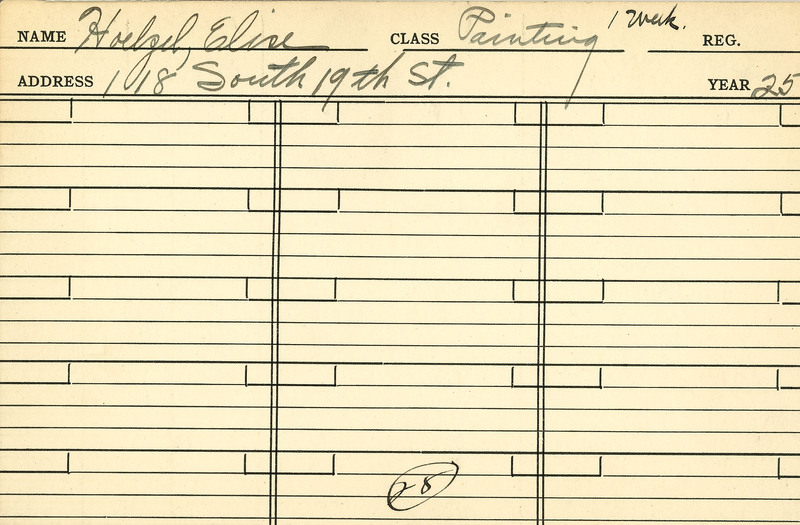 NAME Hoelzel, Elise CLASS Painting 1 Week. REG.
ADDRESS 118 South 19th St. YEAR 25
28